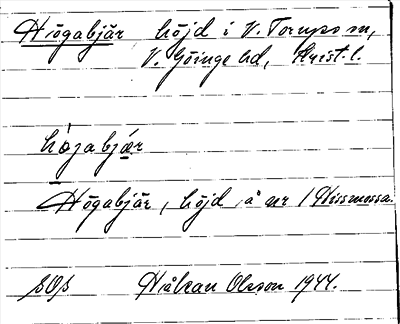 Högabjär höjd i V. Torups sn,
V. Göinge hd, Krist. l.
högabjær
Högabjär, höjd, å nr 1 Hissmossa.
SOS Håkan Olsson 1944.